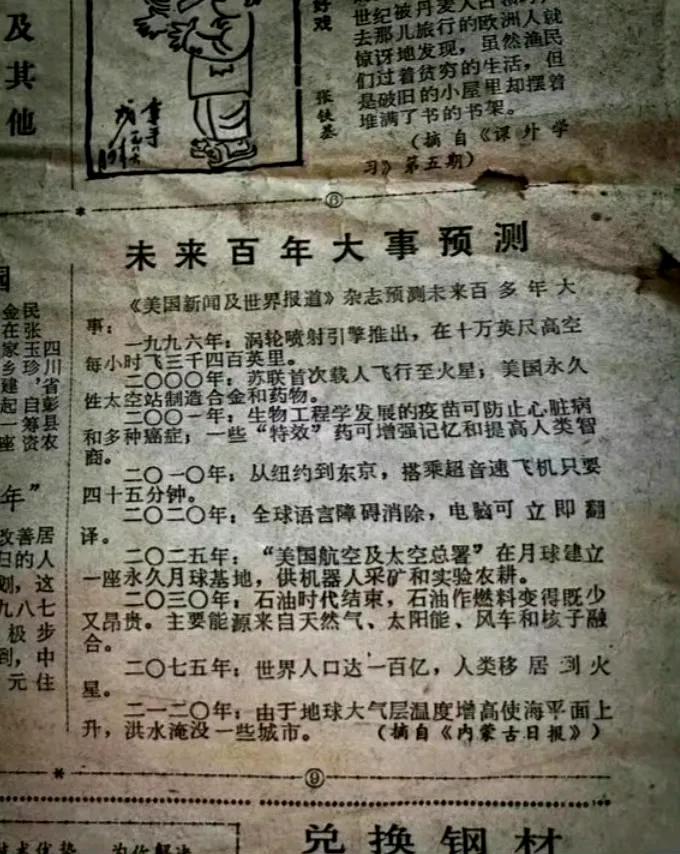 及其他
好戏
张铁基
去那儿旅行的欧洲人就
惊讶地发现，虽然渔民
们过着贫穷的生活，但
是破旧的小屋里却摆着
堆满了书的书架。
（摘自《课外学
习》第五期）
⑥
未来百年大事预测
《美国新闻及世界报道》杂志预测未来百多年大
事：
一九九六年：涡轮喷射引擎推出，在十万英尺高空
每小时飞三千四百英里。
二〇〇〇年：苏联首次载人飞行至火星；美国永久
性太空站制造合金和药物。
二〇〇一年：生物工程学发展的疫苗可防止心脏病
和多种癌症；一些“特效”药可增强记忆和提高人类智
商。
二〇一〇年：从纽约到东京，搭乘超音速飞机只要
四十五分钟。
二〇二〇年：全球语言障碍消除，电脑可立即翻
译。
二〇二五年：“美国航空及太空总署”在月球建立
一座永久月球基地，供机器人采矿和实验农耕。
二〇三〇年：石油时代结束，石油作燃料变得既少
又昂贵。主要能源来自天然气、太阳能、风车和核子融
合。
二〇七五年：世界人口达一百亿，人类移居到火
星。
二一二〇年：由于地球大气层温度增高使海平面上
升，洪水淹没一些城市。（摘自《内蒙古日报》）
四川省彭县农
民张玉珍，自筹资
金在家乡建起一座
年”
改善居
归的人
划，这
九八七
极步
到，中
元住
⑨
兑换钢材